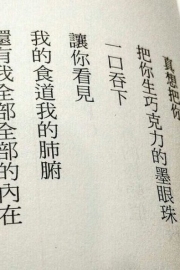 真想把你
把你生巧克力的墨眼珠
一口吞下
讓你看見
我的食道我的肺腑
還有我全部全部的內在